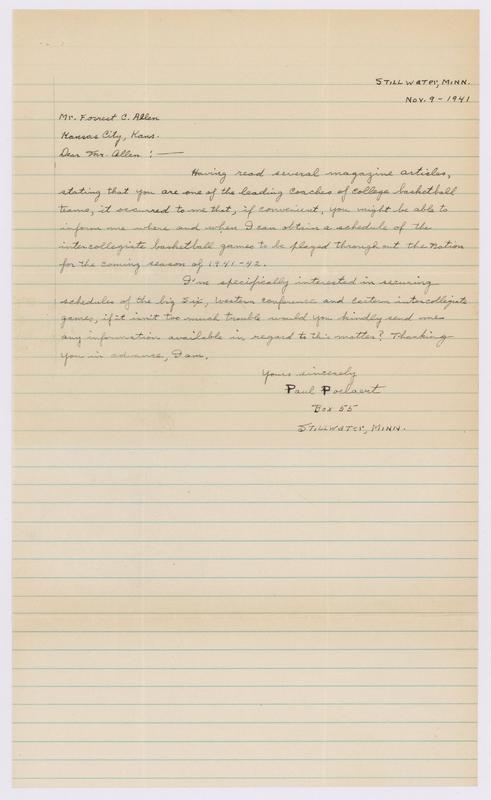 STILLWATER, MINN.
Nov. 9 - 1941
Mr. Forrest C. Allen
Kansas City, Kans.
Dear Mr. Allen : —
Having read several magazine articles,
stating that you are one of the leading coaches of college basketball
teams, it occurred to me that, if convenient, you might be able to
inform me where and when I can obtain a schedule of the
intercollegiate basketball games to be played throughout the Nation
for the coming season of 1941-42.
I'm specifically interested in securing
schedules of the big six, western conference and eastern intercollegiate
games, if it isn't too much trouble would you kindly send me
any information available in regard to this matter? Thanking
you in advance, I am,
Yours sincerely
Paul Poelaert
Box 55
STILLWATER, MINN.